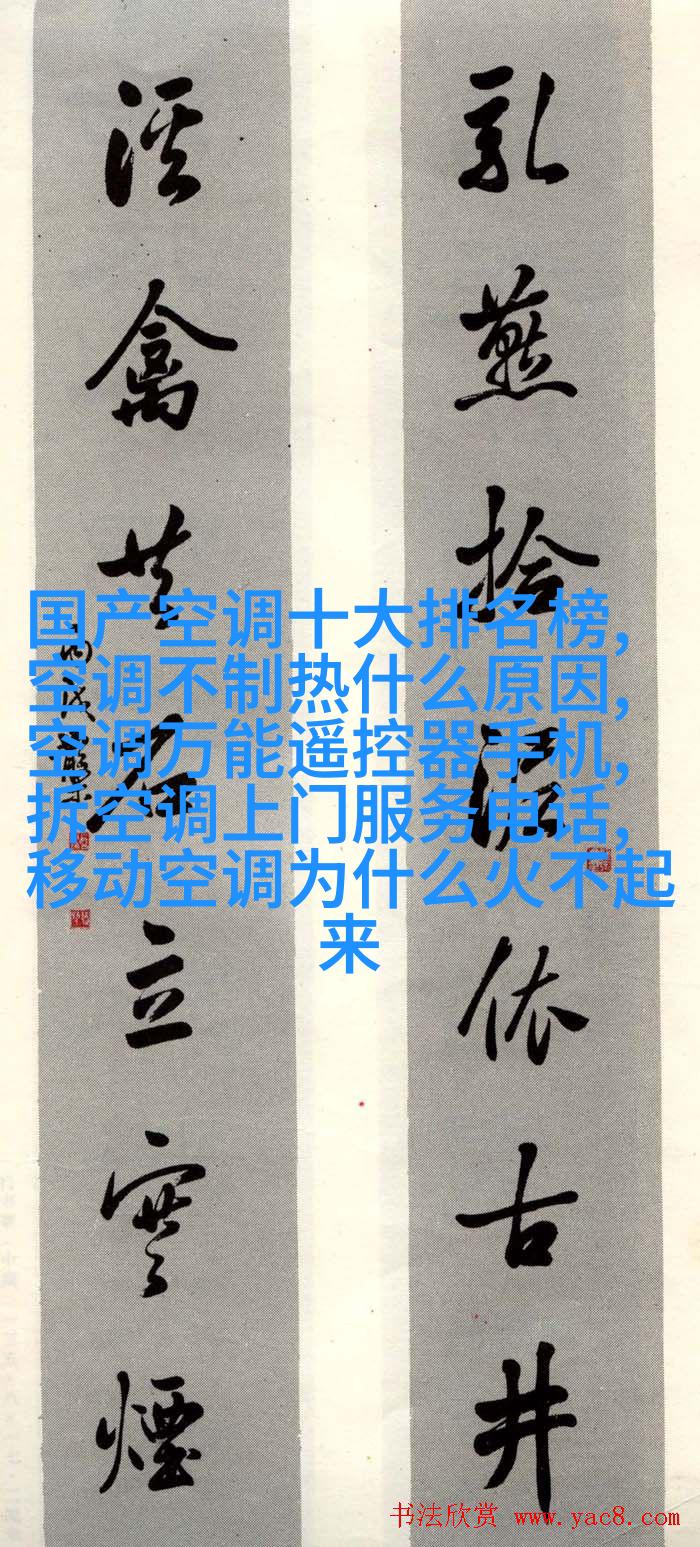 乳燕拾泥依古井
溪禽共石立寒煙
国产空调十大排名榜,
空调不制热什么原因,
空调万能遥控器手机,
拆空调上门服务电话,
移动空调为什么火不起
来
书法欣赏 www.yac8.com